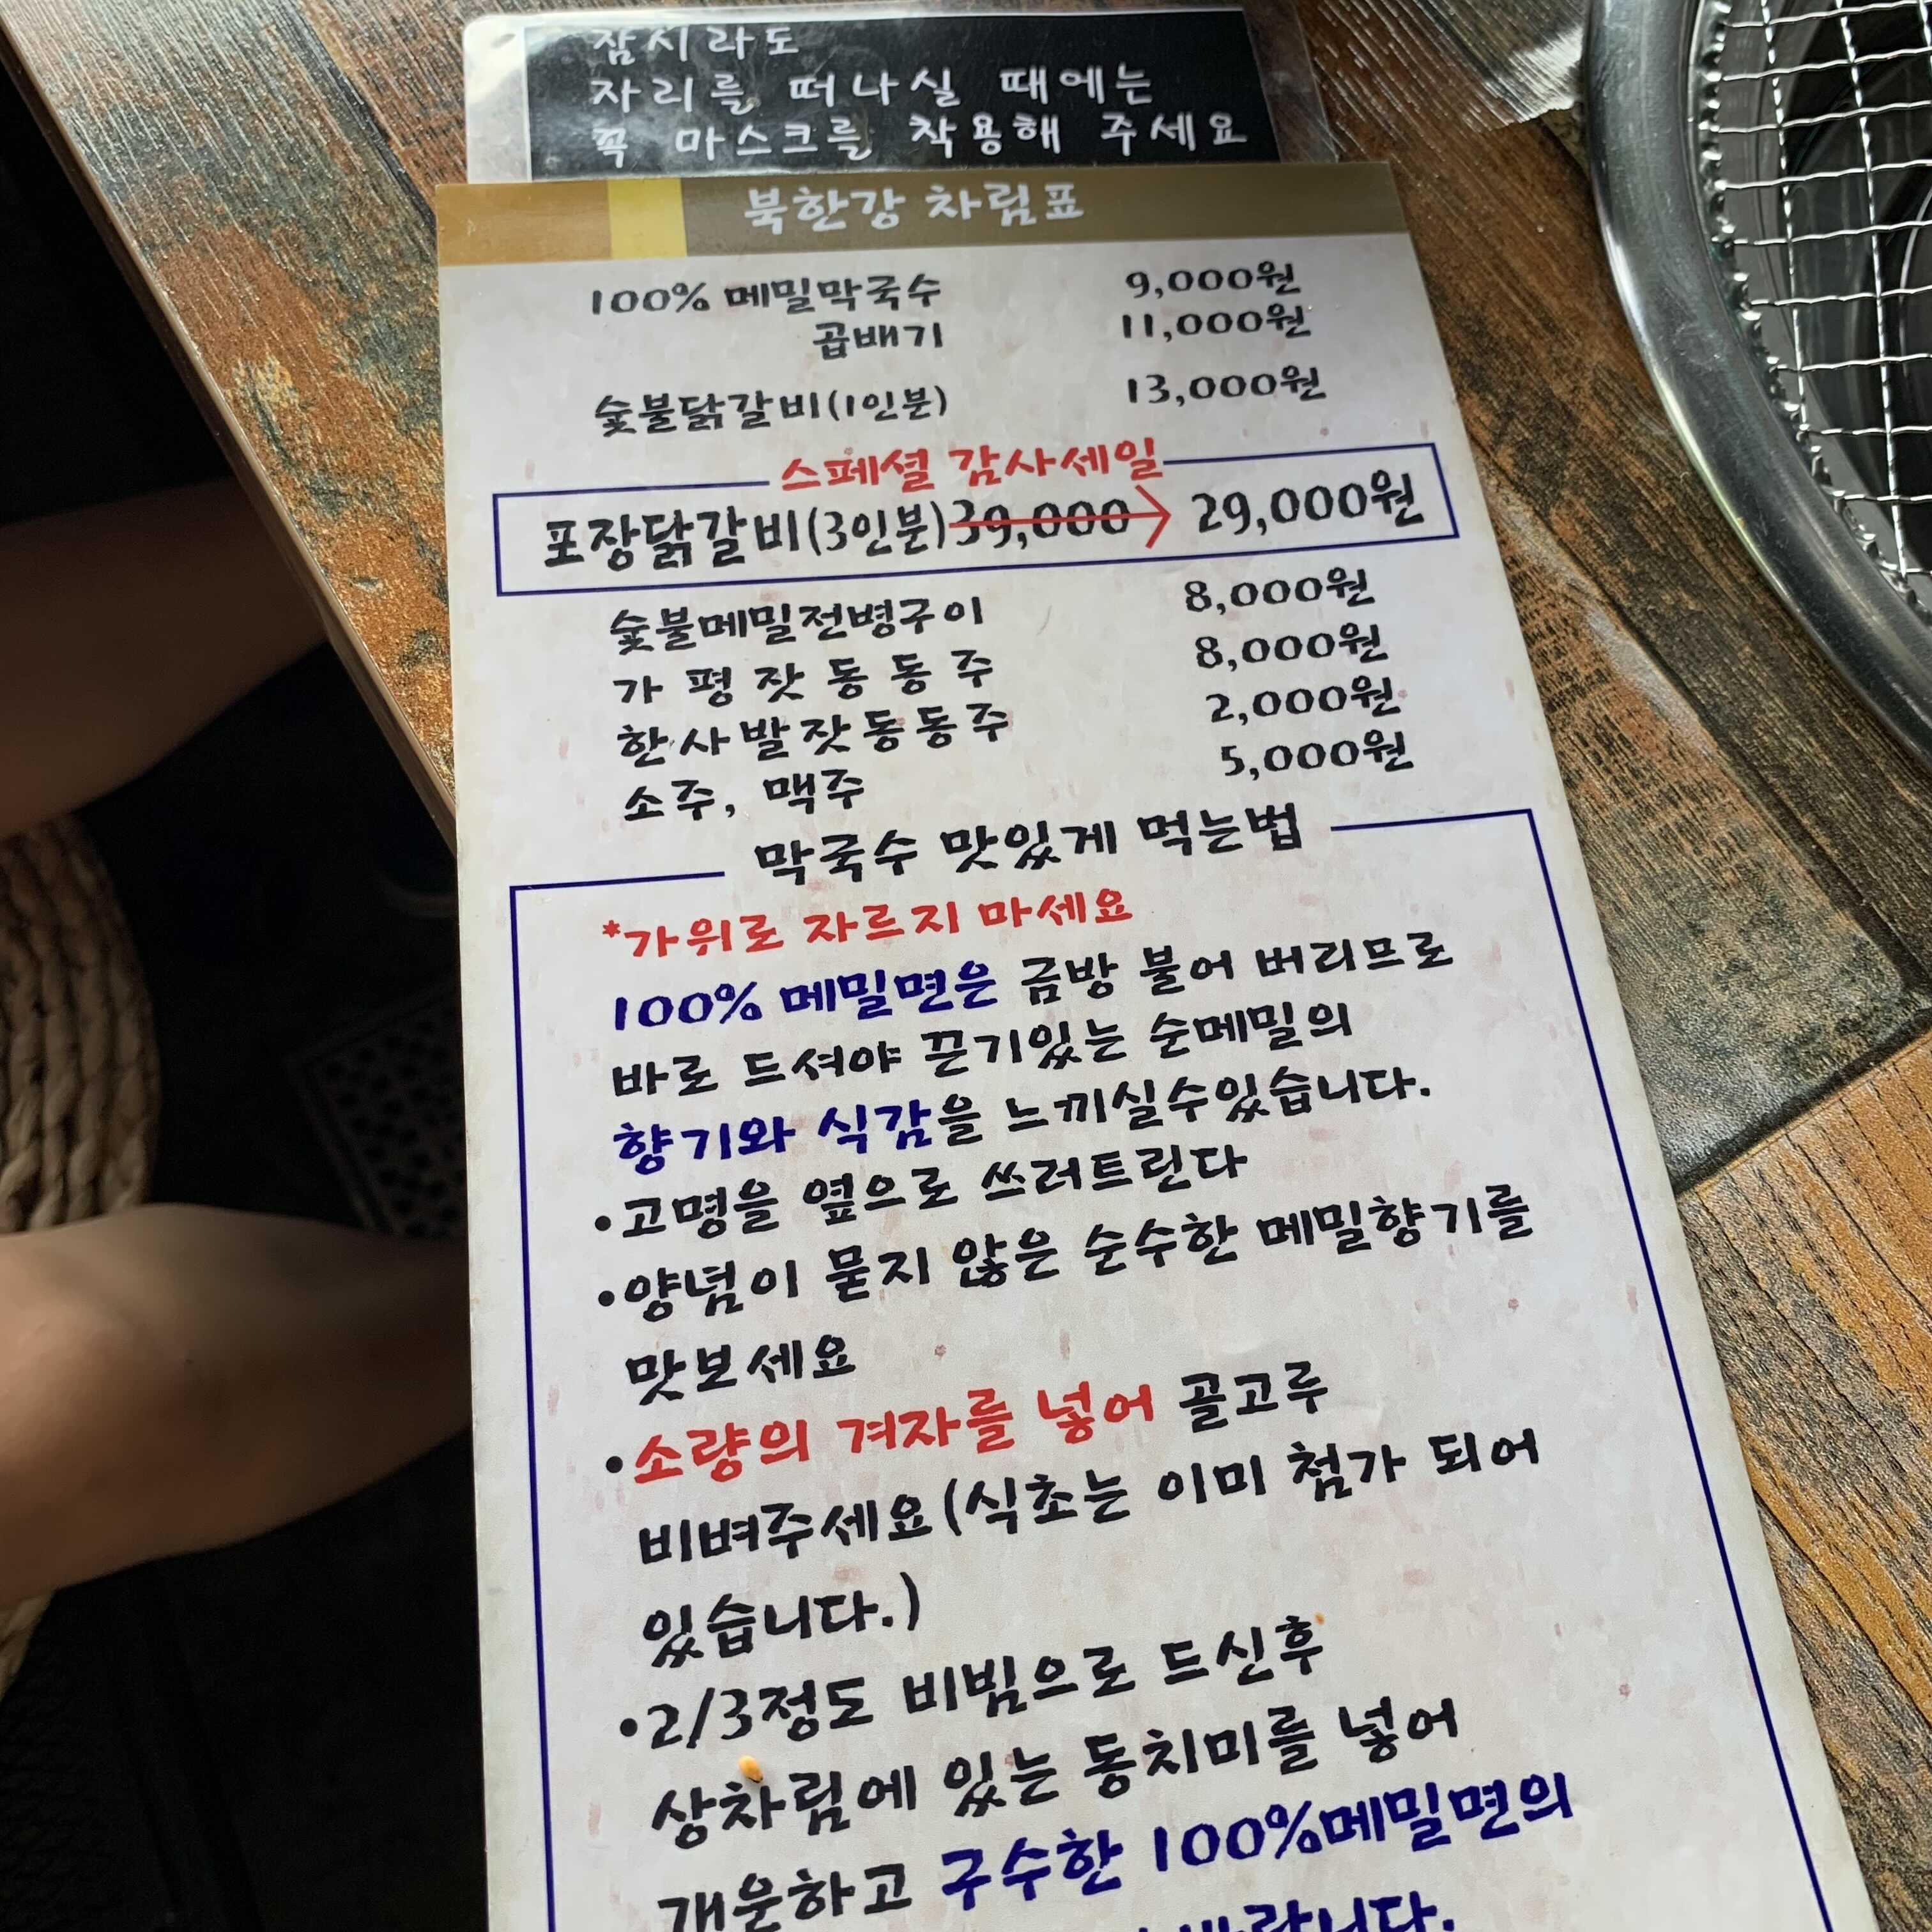 잠시라도
자리를 떠나실 때에는
꼭 마스크를 착용해 주세요
북한강 차림표
100% 메밀막국수 9,000원
곱배기 11,000원
숯불닭갈비(1인분) 13,000원
스페셜 감사세일
포장닭갈비(3인분) 39,000 → 29,000원
숯불메밀전병구이 8,000원
가평잣동동주 8,000원
한사발잣동동주 2,000원
소주, 맥주 5,000원
막국수 맛있게 먹는법
*가위로 자르지 마세요
100% 메밀면은 금방 불어 버리므로
바로 드셔야 끈기있는 순메밀의
향기와 식감을 느끼실수있습니다.
•고명을 옆으로 쓰러트린다
•양념이 묻지 않은 순수한 메밀향기를
맛보세요
•소량의 겨자를 넣어 골고루
비벼주세요(식초는 이미 첨가 되어
있습니다.)
•2/3정도 비빔으로 드신후
상차림에 있는 동치미를 넣어
개운하고 구수한 100%메밀면의
바랍니다.